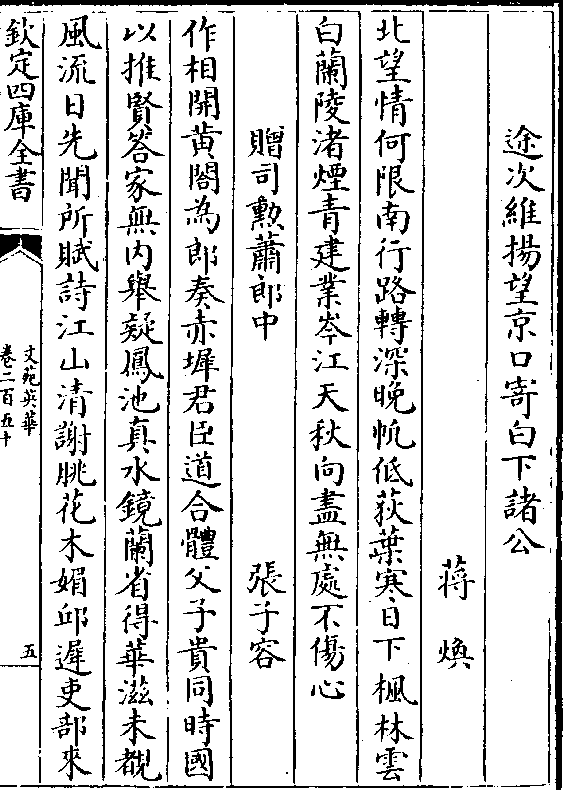 途次維揚望京口寄白下諸公
蔣煥
北望情何限南行路轉深晚帆低荻葉寒日下楓林雲
白蘭陵渚煙青建業岑江天秋向盡無處不傷心
贈司勲蕭郎中
張子容
作相開黄閣為郎奏赤墀君臣道合體父子貴同時國
以推賢答家無内舉疑鳳池真水鏡蘭省得華滋未覩
風流日先聞所賦詩江山清謝朓花木媚邱遲吏部來
欽定四庫全書
文苑英華
卷二百五十
五